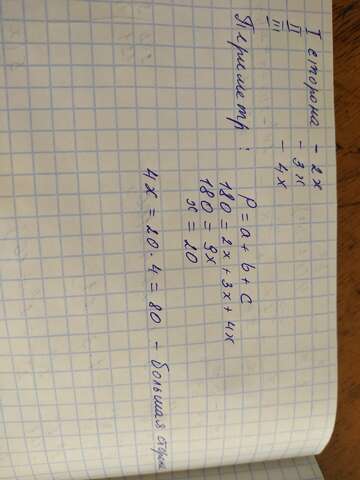 I сторона - 2x
II - 3x
III - 4x
Периметр : P = a + b + c
180 = 2x + 3x + 4x
180 = 9x
x = 20
4x = 20 · 4 = 80 - большая сторона